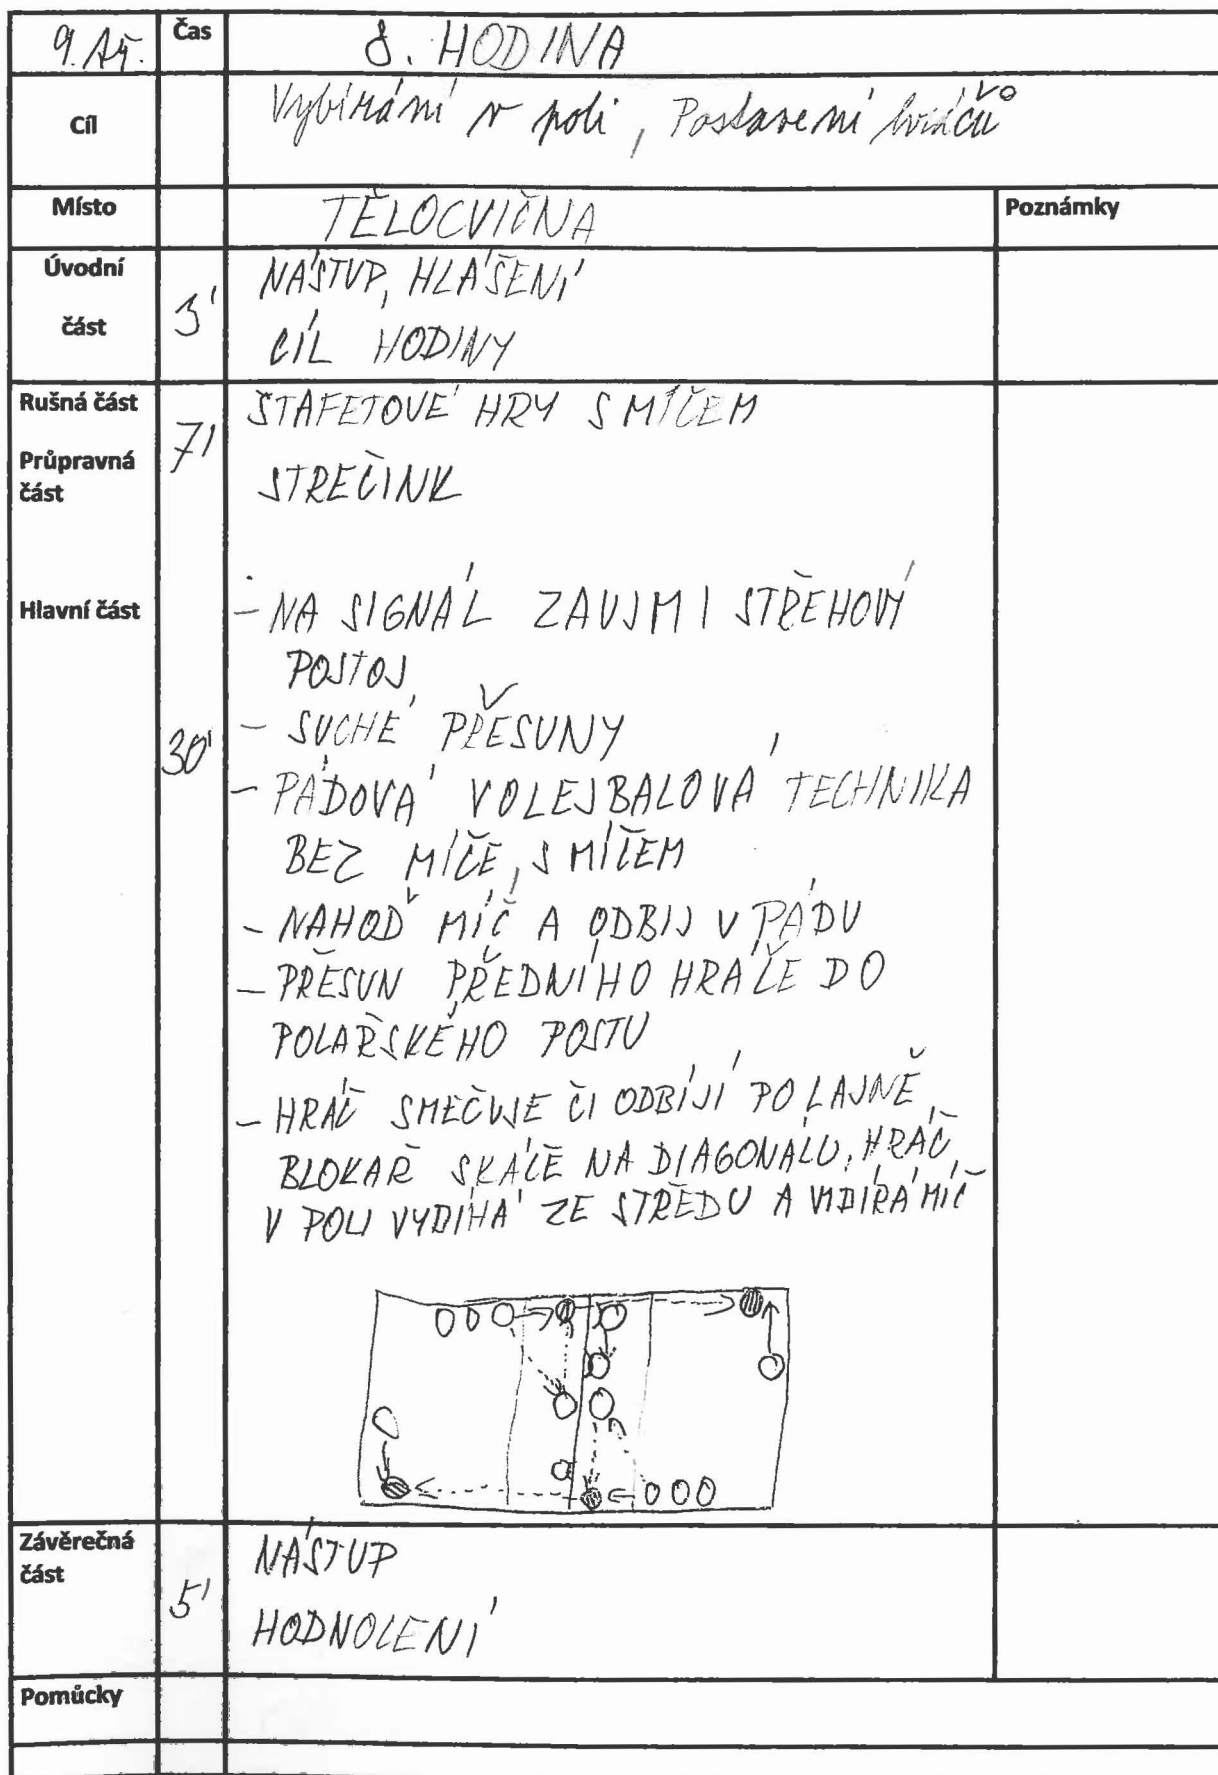 9. Čas 8. HODINA
Cíl Vybírání v poli, Postavení hráčů
Místo TĚLOCVIČNA Poznámky
Úvodní
část
3'
NÁSTUP, HLÁŠENÍ
CÍL HODINY
Rušná část
Průpravná
část
7'
ŠTAFETOVÉ HRY S MÍČEM
STREČINK
Hlavní část
30'
- NA SIGNÁL ZAUJMI STŘEHOVÝ
POSTOJ
- SUCHÉ PŘESUNY
- PÁDOVÁ VOLEJBALOVÁ TECHNIKA
BEZ MÍČE, S MÍČEM
- NAHOĎ MÍČ A ODBIJ V PÁDU
- PŘESUN PŘEDNÍHO HRÁČE DO
POLAŘSKÉHO POSTU
- HRÁČ SMEČUJE ČI ODBÍJÍ PO LAJNĚ,
BLOKAŘ SKÁČE NA DIAGONÁLU, HRÁČ
V POLI VYBÍHÁ ZE STŘEDU A VYBÍRÁ MÍČ
Závěrečná
část
5'
NÁSTUP
HODNOCENÍ
Pomůcky